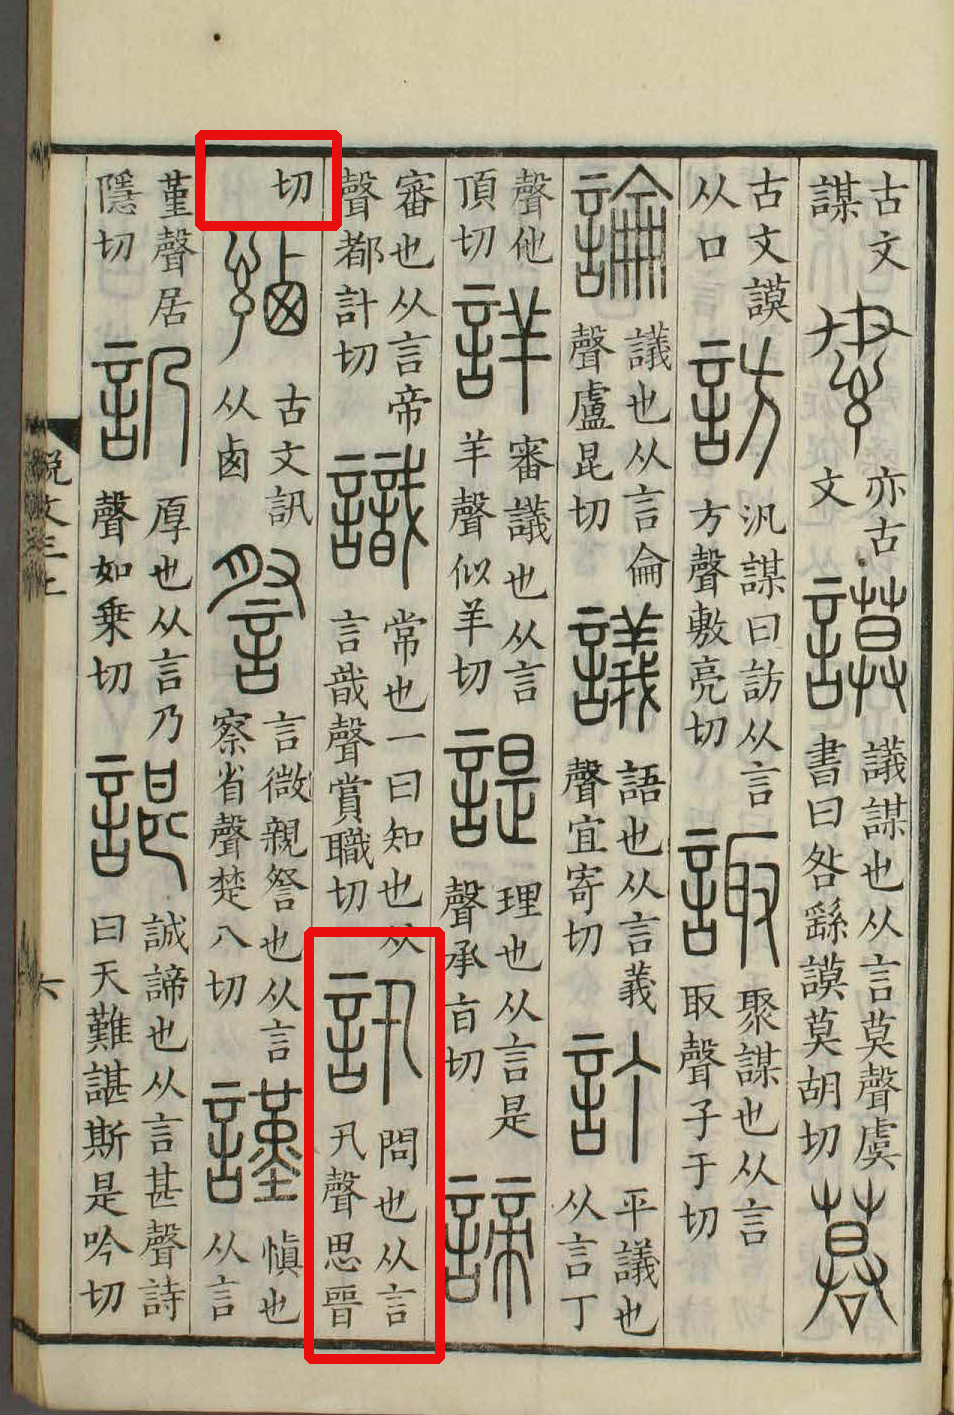 古文謀 亦古文 謨 議謀也从言莫聲虞書曰咎繇謨莫胡切
古文謨从口 訪 汎謀曰訪从言方聲敷亮切 諏 聚謀也从言取聲子于切
論 議也从言侖聲盧昆切 議 語也从言義聲宜寄切 訂 平議也从言丁
聲他頂切 詳 審議也从言羊聲似羊切 諟 理也从言是聲承旨切 諦
審也从言帝聲都計切 識 常也一曰知也从言戠聲賞職切 訊 問也从言卂聲思晉
切 古文訊从鹵 詧 言微親詧也从言察省聲楚八切 謹 慎也从言
堇聲居隱切 䚮 厚也从言乃聲如乘切 諶 誠諦也从言甚聲詩曰天難諶斯是吟切
説文三上 六